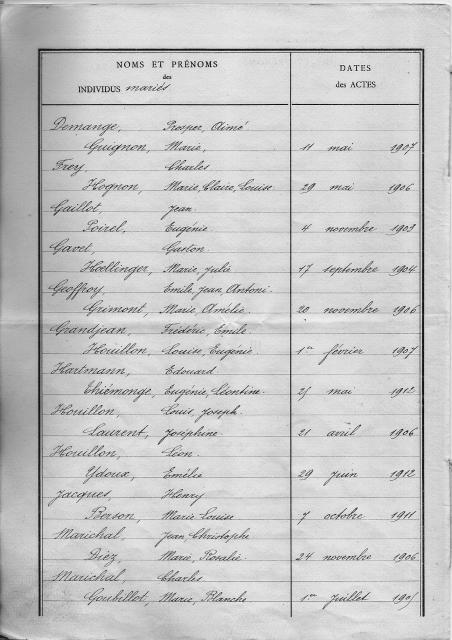 NOMS ET PRÉNOMS DATES
des
INDIVIDUS mariés des ACTES
Demange, Prosper, Aimé
Guignon, Marie, 11 mai 1907
Frey Charles
Hognon, Marie, Claire, Louise 29 mai 1906
Gaillot, Jean
Poirel, Eugénie 4 novembre 1903
Gavet, Gaston
Hoellinger, Marie, Julie 17 septembre 1904
Geoffroy, Emile, Jean, Antoni
Grimont, Marie, Amélie 20 novembre 1906
Grandjean, Frédéric, Emile
Houillon, Louise, Eugénie 1er février 1907
Hartmann, Edouard
Thiémonge, Eugénie, Léontine 25 mai 1912
Houillon, Louis, Joseph
Laurent, Joséphine 21 avril 1906
Houillon, Léon
Ydoux, Emélie 29 juin 1912
Jacques, Henry
Berson, Marie-Louise 7 octobre 1911
Marichal, Jean, Christophe
Diez, Marie, Rosalie 24 novembre 1906
Marichal, Charles
Goubillot, Marie, Blanche 1er juillet 1905